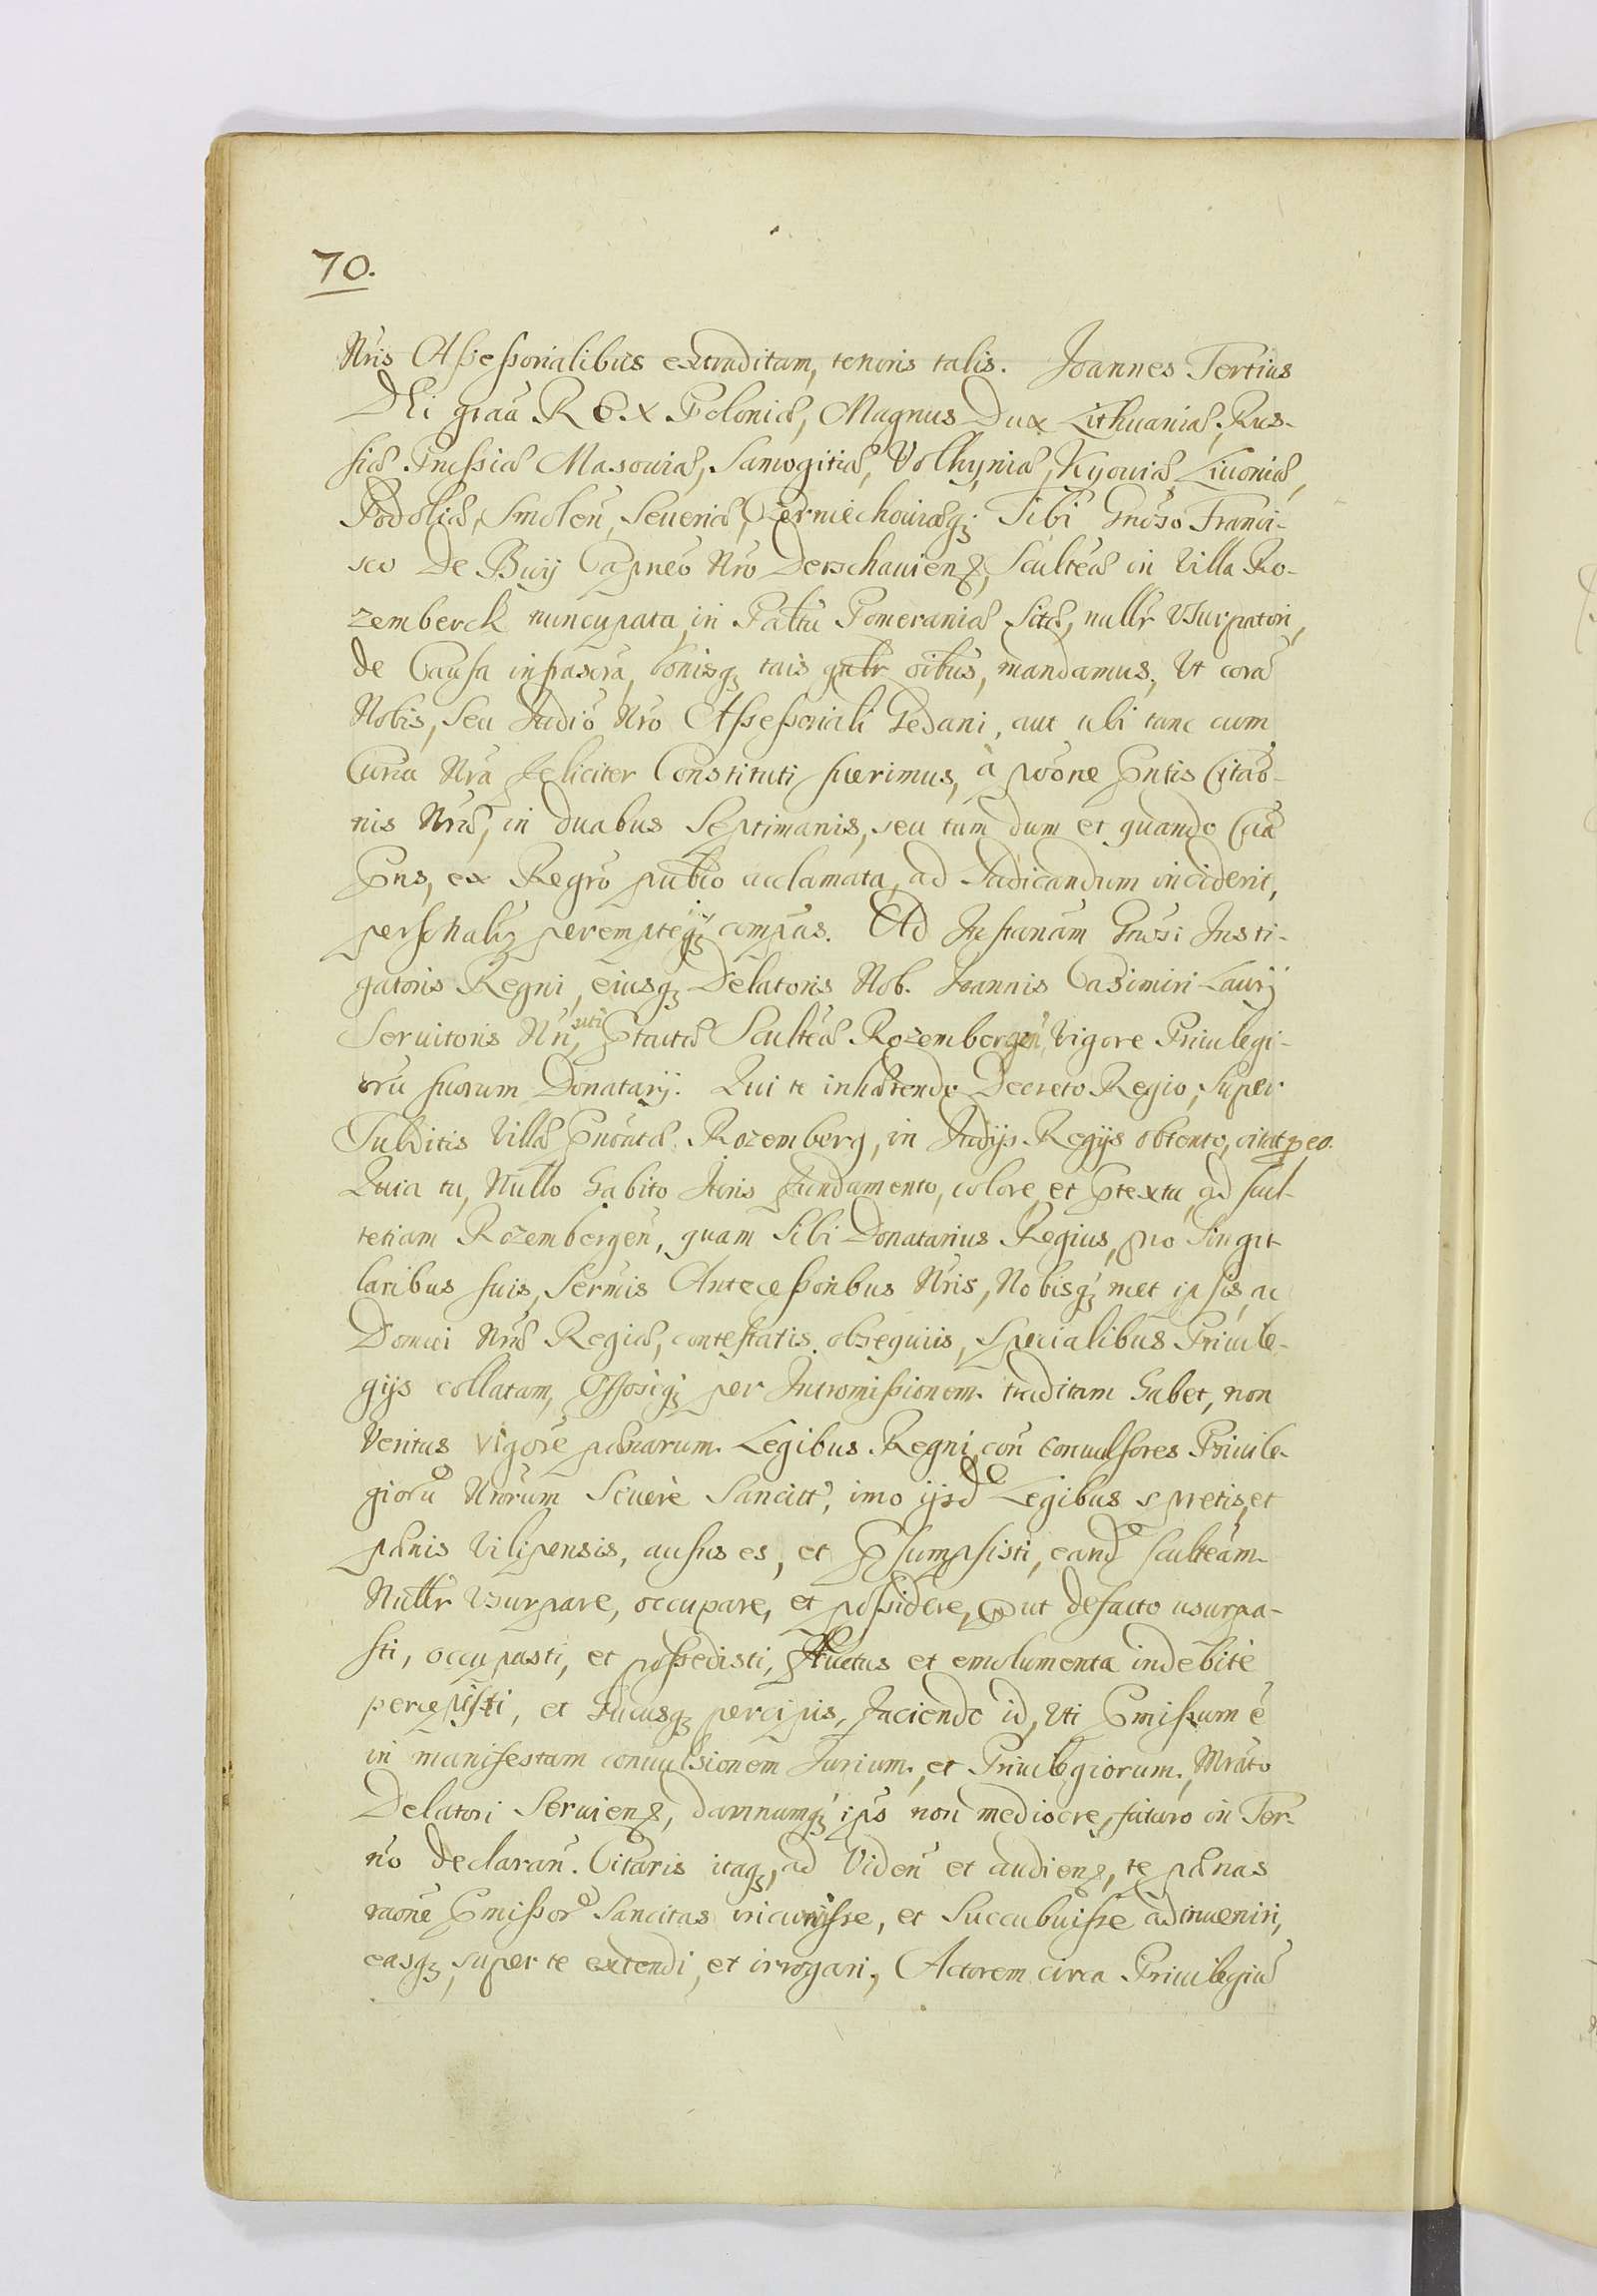 70.
Nris Assessorialibus extraditam, tenoris talis. Joannes Tertius
DEi graã REX Poloniæ, Magnus Dux Lithuaniæ, Rus-
siæ Prussiæ Masouiæ, Samogitiæ, Volhyniæ, Kyouiæ, Liuoniæ,
Podoliæ, Smolen, Seueriæ, Czerniechouiæq; Tibi Gnoso Franci-
sco De Buy Capneo Nro Derschauien, Sculteæ in Villa Ro-
zemberck nuncupata, in Pattu Pomeraniæ sitæ, nullr Vsurpatori,
de Causa infrascra, bonisq; tuis gnlr oibus, mandamus, Ut corã
Nobis, seu Judio Nro Assessoriali Gedani, aut ubi tunc cum
Curia Nra feliciter Constituti fuerimus, à pone Pntis Citao-
nis Nræ, in duabus Septimanis, seu tum dum et quando Cãa
Pns, ex Regro publo acclamata, ad Judicandum inciderit,
personalr peremptieq; compas. Ad Instanam Gnosi Insti-
gatoris Regni, eiusq; Delatoris Nob. Joannis Casimiri Laurij
Seruitoris Nri, uti Ptactæ Sculteæ Rozembergen, Vigore Priuilegi-
orũ suorum Donatarij. Qui te inhærendo Decreto Regio, super
Subditis Villæ Pnoutæ Rozemberg, in Judijs Regijs obtento, citat p eo.
Quia tu, Nullo habito Juris fundamento, colore et Ptextu, ad scul-
tetiam Rozembergen, quam sibi Donatarius Regius, pro singu-
laribus suis, Sermis Antecessoribus Nris, Nobisq; met ipsis, ac
Domui Nræ Regiæ, contestatis obsequiis, specialibus Priuile-
gijs collatam, Possoiq; per Intromissionem traditam habet, non
Veritus vigore pænarum Legibus Regni con conuulsores Priuile-
giorũ Nrorum Seuerè Sancitt, imo ijsd Legibus spretis, et
pænis Vilipensis, ausus es, et Psumpsisti, eand sculteam
Nullr Vsurpare, occupare, et possidere, put defacto usurpa-
sti, occupasti, et possedisti, fructus et emolumenta indebite
percepisti, et hucusq; percipis, faciendo id, Uti Pmissum ẽ
in manifestam conuulsionem Jurium, et Priuilegiorum, Mrato
Delatori Seruien, damnumq; ipso non mediocre, futuro in Ter-
no declaran. Citaris itaq;, ad Viden et audien, te pænas
raone Pmissor Sancitas incurrisse, et Succubuisse adinueniri,
easq; super te extendi, et irrogari, Actorem circa Priuilegiũ